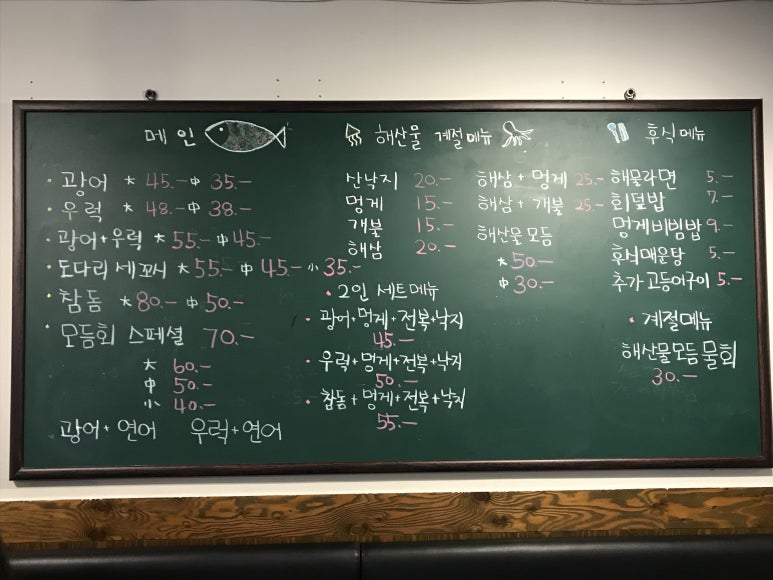 메인
· 광어 大 45.- 中 35.-
· 우럭 大 48.- 中 38.-
· 광어+우럭 大 55.- 中 45.-
· 도다리세꼬시 大 55.- 中 45.- 小 35.-
· 참돔 大 80.- 中 50.-
· 모듬회 스페셜 70.-
大 60.-
中 50.-
小 40.-
광어+연어 우럭+연어
해산물 계절메뉴
산낙지 20.-
멍게 15.-
개불 15.-
해삼 20.-
해삼+멍게 25.-
해삼+개불 25.-
해산물모듬
大 50.-
中 30.-
· 2인 세트메뉴
· 광어+멍게+전복+낙지
45.-
· 우럭+멍게+전복+낙지
50.-
· 참돔+멍게+전복+낙지
55.-
후식메뉴
해물라면 5.-
회덮밥 7.-
멍게비빔밥 9.-
후식매운탕 5.-
추가고등어구이 5.-
· 계절메뉴
해산물모듬물회
30.-